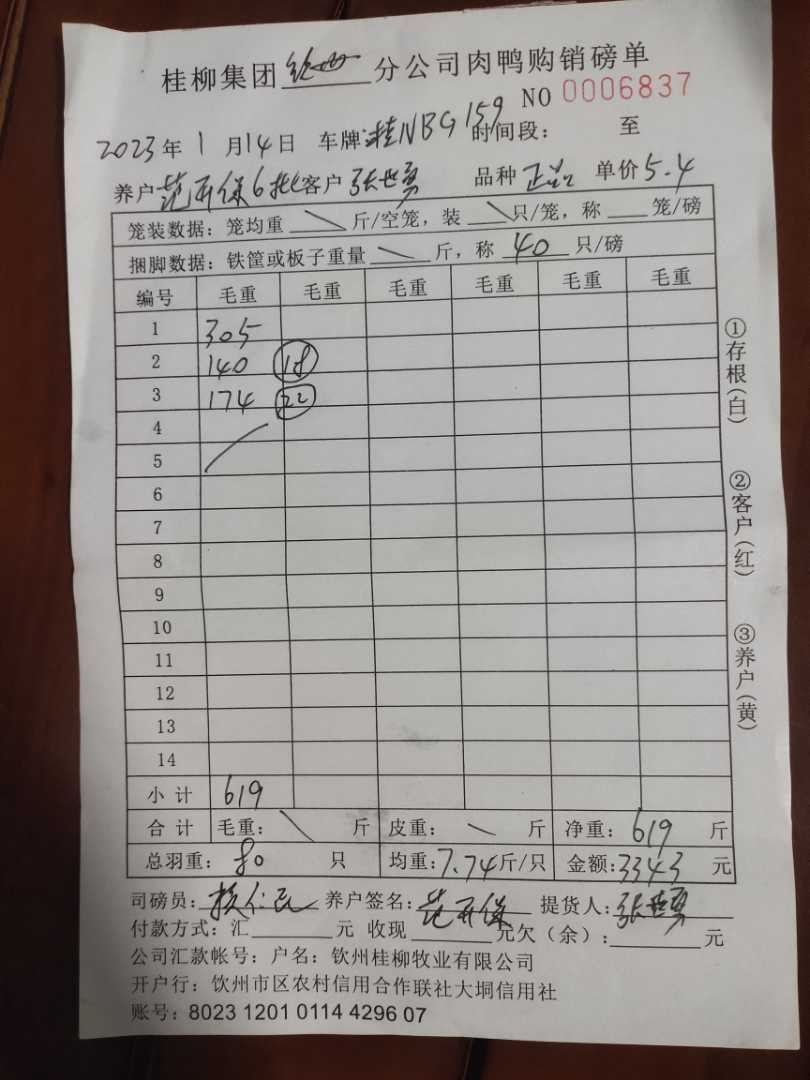 桂柳集团 分公司肉鸭购销磅单
NO 0006837
2023年1月14日 车牌:桂NBG159 时间段: 至
养户 范开保6批 客户 张世勇 品种 正品 单价 5.4
笼装数据: 笼均重 \ 斤/空笼, 装 \ 只/笼, 称 笼/磅
捆脚数据: 铁筐或板子重量 \ 斤, 称 40 只/磅
编号 毛重 毛重 毛重 毛重 毛重 毛重
1 305
2 140 18
3 174 22
4
5
6
7
8
9
10
11
12
13
14
小计 619
合计 毛重: \ 斤 皮重: \ 斤 净重: 619 斤
总羽重: 80 只 均重: 7.74 斤/只 金额: 3343 元
司磅员: 养户签名: 范开保 提货人: 张世勇
付款方式: 汇 元 收现 元欠(余): 元
公司汇款帐号: 户名: 钦州桂柳牧业有限公司
开户行: 钦州市区农村信用合作联社大垌信用社
账号: 8023 1201 0114 4296 07
①存根(白)
②客户(红)
③养户(黄)